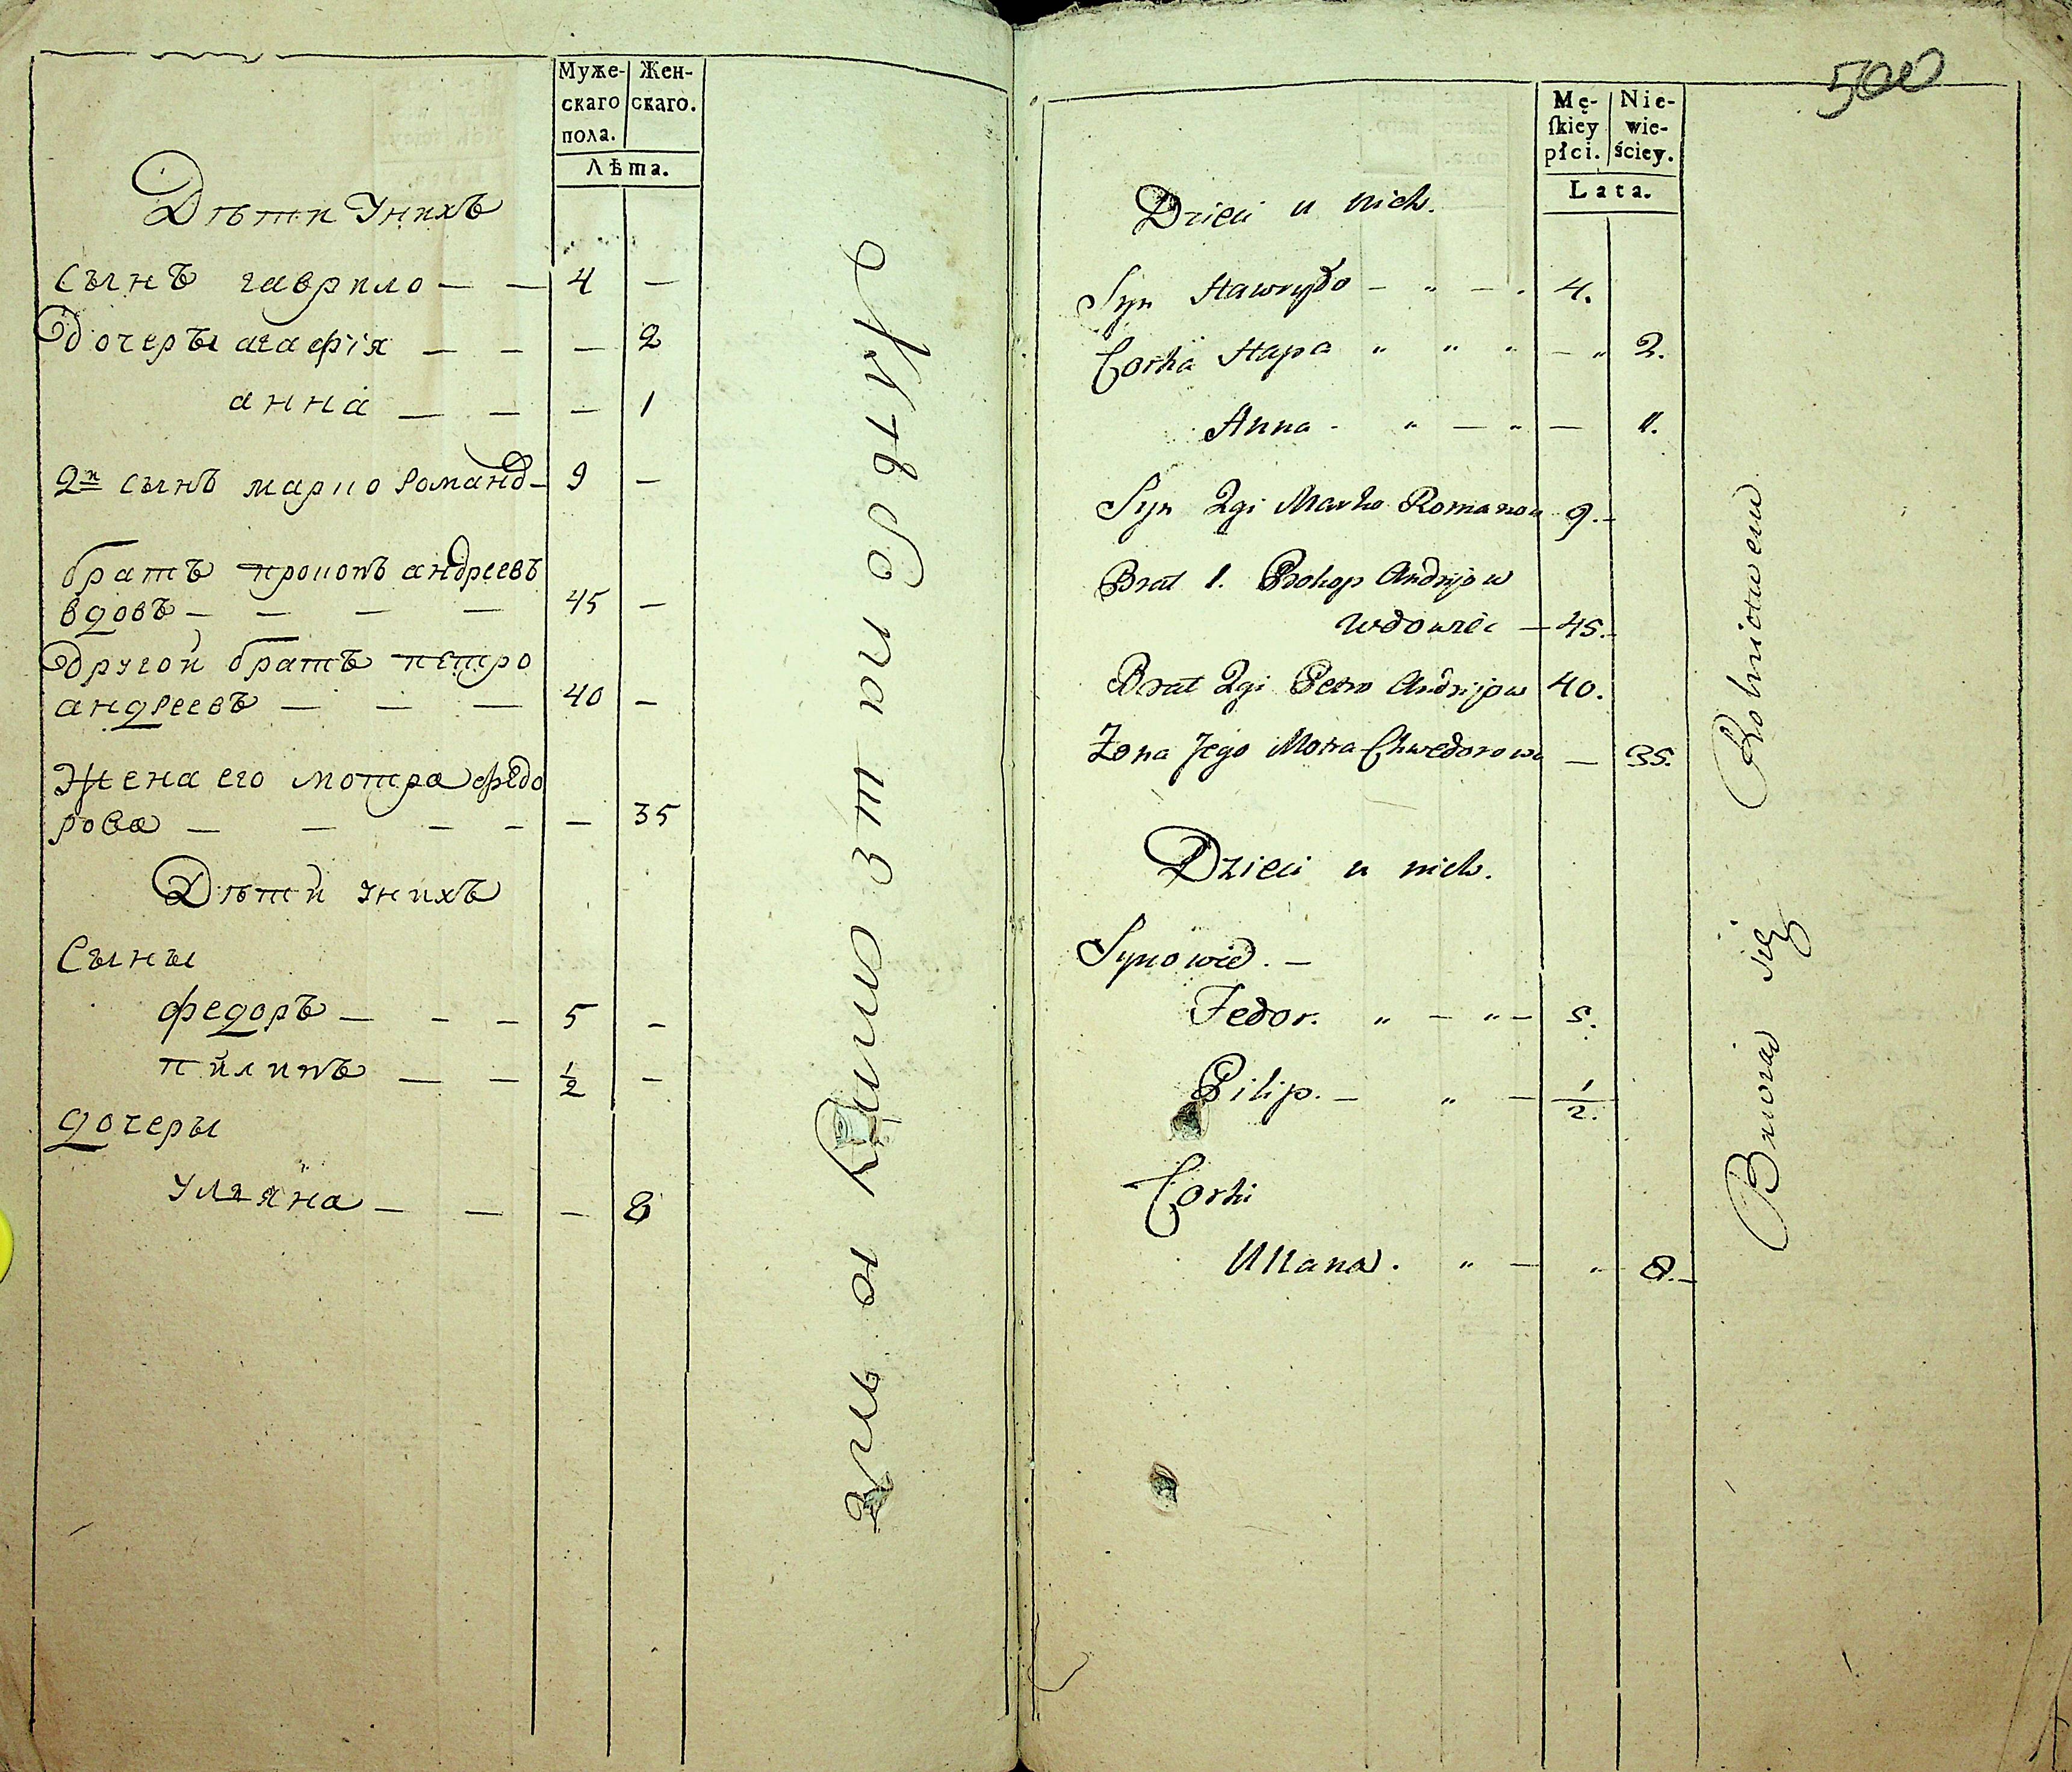 Муже-
скаго
пола.
Жен-
скаго.
Лѣта.
Дѣти Унихъ
Сынъ гаврило — — 4 —
дочеры агафія — — — 2
анна — — — 1
2й сынъ марко Романов 9 —
братъ прокопъ андреевъ
вдовъ — — — — 45 —
другой братъ петро
андреевъ — — — 40 —
Жена его мотра федо
рова — — — — — 35
Дѣти унихъ
Сыны
федоръ — — — 5 —
пилипъ — — 1/2 —
дочеры
уляна — — — 8
500
Mę-
ſkiey
płci.
Nie-
wie-
ściey.
Lata.
Dzieci u nich.
Syn Hawryło — „ — . 4.
Corka Hapa „ „ „ — „ 2.
Anna - „ — „ — 1.
Syn 2gi Marko Romanow 9. —
Brat 1. Prokop Andrijow
Wdowiec — 45. —
Brat 2gi Petro Andrijow 40.
Żona Jego Motra Chwedorowa — 35.
Dzieci u nich.
Synowie. —
Fedor. „ — „ — 5.
Pilip. — „ — 1/2.
Corki
Ullana. „ — „ 8. —
Bawią się Rolnictwem